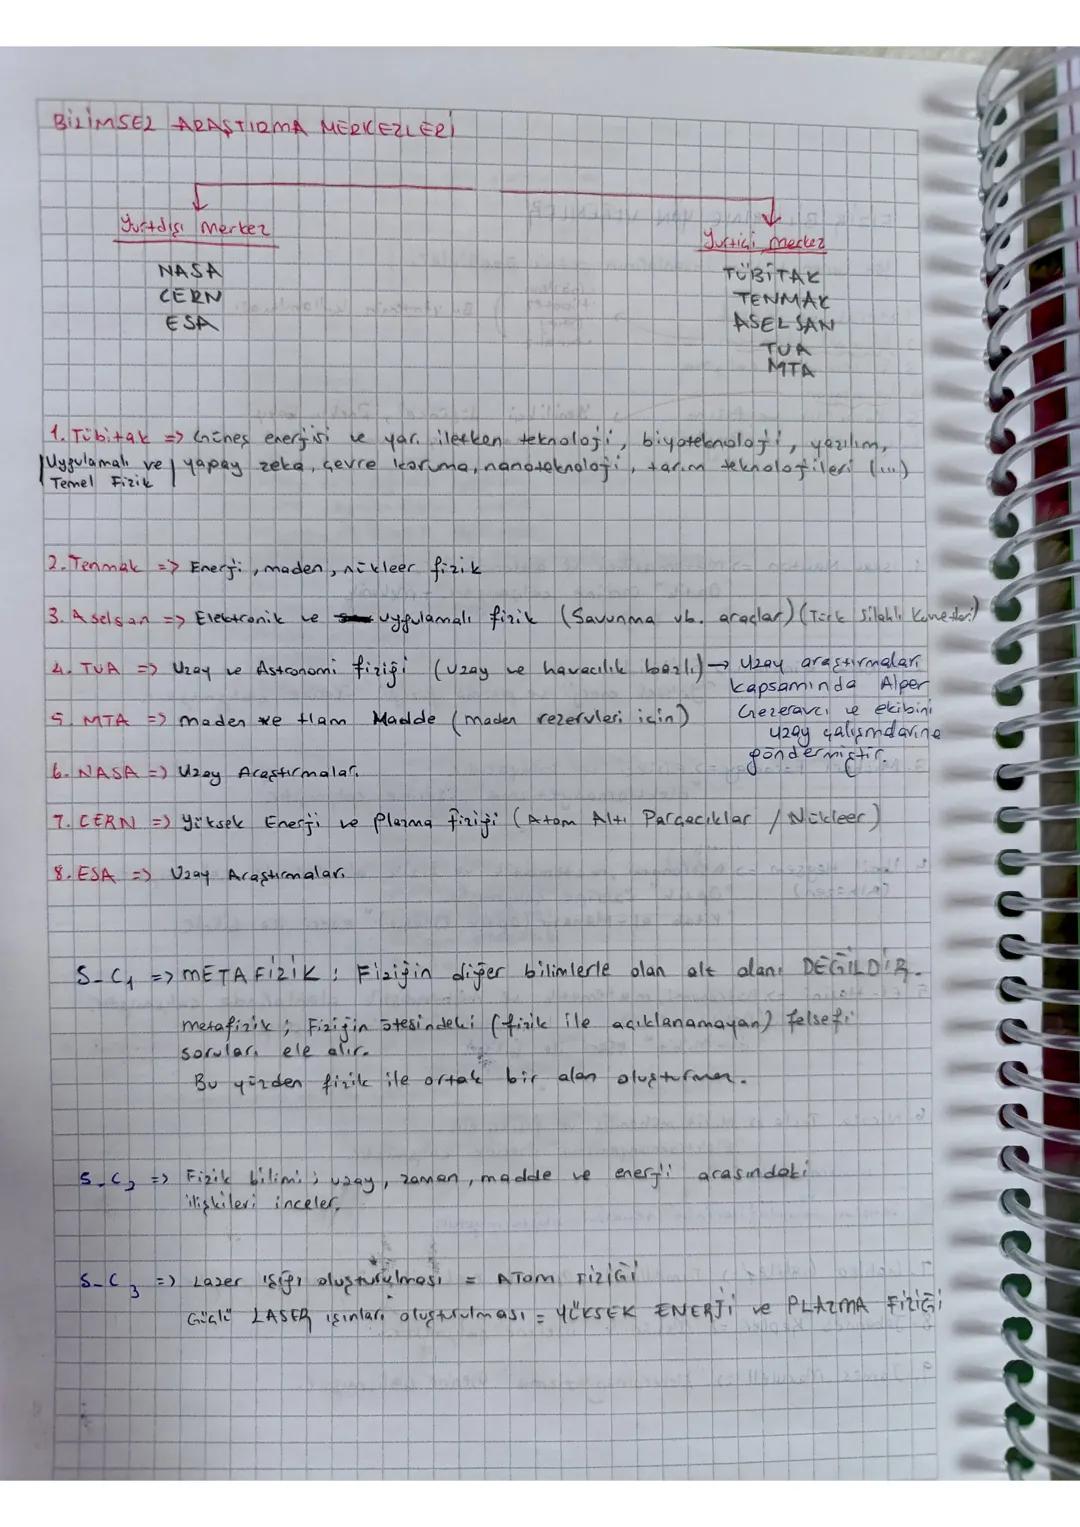 BİLİMSEL ARAŞTIRMA MERKEZLERİ
Yurtdışı Merkez
NASA
CERN
ESA
Yurtiçi Merkez
TÜBİTAK
TENMAK
ASELSAN
TUA
MTA
1. Tübitak => Güneş enerjisi ve yarı iletken teknoloji, biyoteknoloji, yazılım,
Uygulamalı ve Temel Fizik
yapay zeka, çevre koruma, nanoteknoloji, tarım teknolojileri (...)
2. Tenmak => Enerji, maden, nükleer fizik
3. Aselsan => Elektronik ve uygulamalı fizik (Savunma vb. araçlar) (Türk Silahlı Kuvvetleri)
4. TUA => Uzay ve Astronomi fiziği (uzay ve havacılık bazlı) → Uzay araştırmaları
kapsamında Alper
Gezeravcı ve ekibini
uzay çalışmalarına
göndermiştir.
5. MTA => maden ve Ham Madde (maden rezervleri için)
6. NASA => Uzay Araştırmaları
7. CERN => Yüksek Enerji ve Plazma fiziği (Atom Altı Parçacıklar / Nükleer)
8. ESA => Uzay Araştırmaları
S-C1 => METAFİZİK : Fiziğin diğer bilimlerle olan alt alanı DEĞİLDİR.
metafizik ; Fiziğin ötesindeki (fizik ile açıklanamayan) felsefi
soruları ele alır.
Bu yüzden fizik ile ortak bir alan oluşturmaz.
S-C2 => Fizik bilimi ; uzay, zaman, madde ve enerji arasındaki
ilişkileri inceler.
S-C3 => Lazer ışığı oluşturulması = ATOM FİZİĞİ
Güçlü LASER ışınları oluşturulması = YÜKSEK ENERJİ ve PLAZMA FİZİĞİ